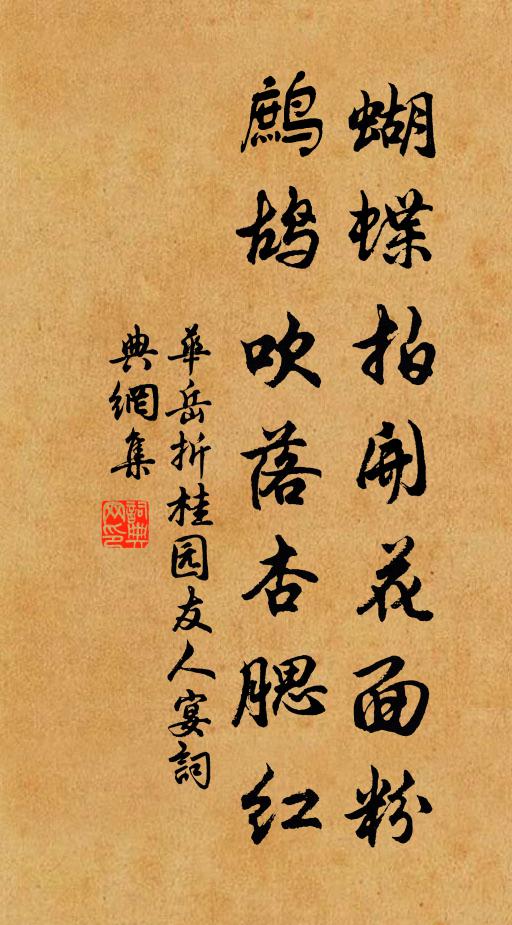 蝴蝶拍開花面粉
鷓鴣吹落杏腮红
華岳折桂园友人宴詞
典網集
詞典
网印